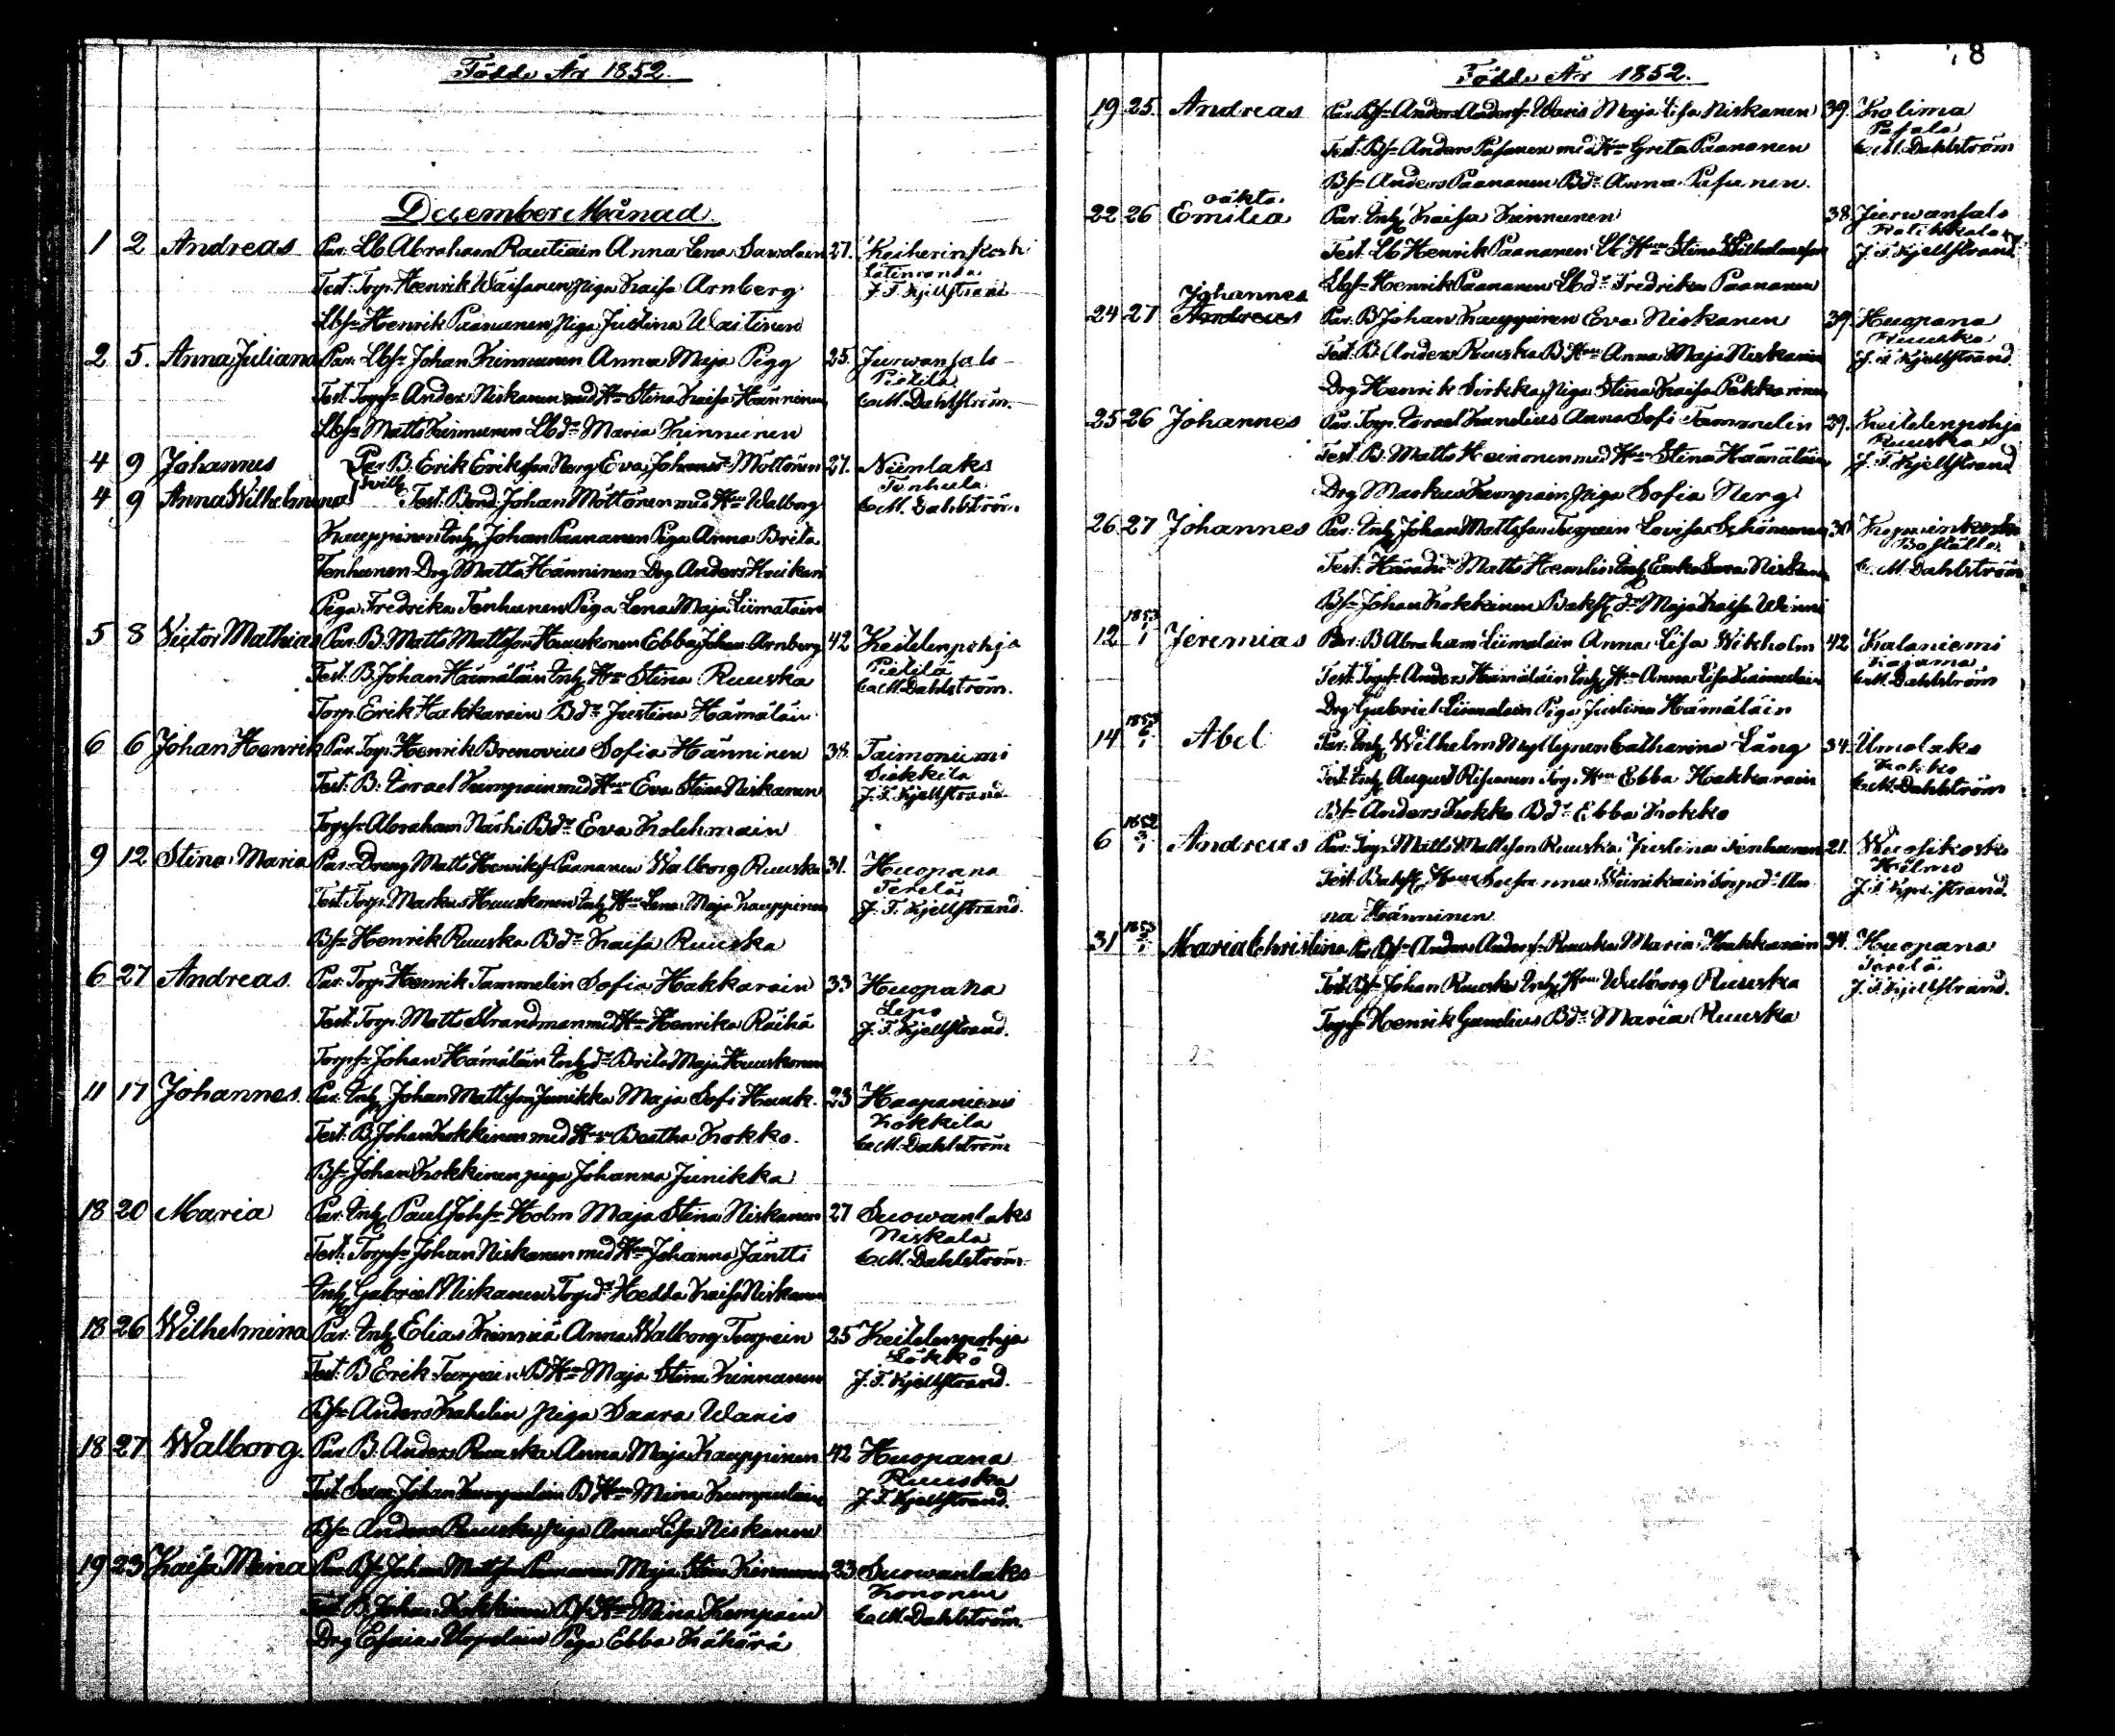 Födde År 1852.
December Månad.
1 2 Andreas Par. Lb Abraham Rautiain Anna Lena Sawolain 27. Keiherinkoski
J. F. Kjellstrand
Test. Torp. Henrik Wäisänen piga Kaisa Arnberg
Lbs. Henrik Paananen Piga Justina Wäitinen
2 5. Anna Juliana Par. Lbs. Johan Kinnunen Anna Maja Pigg 25. Jurwansalo
Pietilä
Test. Torps. Anders Niskanen med H. Stina Kaisa Hänninen C. M. Dahlström.
Lbs. Matts Kinnunen Lbd. Maria Kinnunen
4 9 Johannes Par B. Erik Eriksson Nerg Eva Johansd. Möttönen 27. Nienlaks
Tvill. Tenhula
4 9 Anna Wilhelmina Test. Bond. Johan Möttönen med H. Walborg C. M. Dahlström.
Kauppinen Inh. Johan Paananen Piga Anna Brita
Tenhunen Drg Matts Hänninen Drg Anders Houkari
Piga Fredrika Tenhunen Piga Lena Maja Liimatain
5 8 Victor Mathias Par. B. Matts Mattsson Huuskonen Ebba Johan. Arnberg 42 Keitelenpohja
Pietilä
Test. B. Johan Hämäläin Inh. H. Stina Ruuska C. M. Dahlström.
Torp. Erik Hakkarain Bd. Justina Hämäläin
6 6 Johan Henrik Par. Torp. Henrik Brenovius Sofia Hänninen 38. Taimoniemi
Siekkilä
Test. B. Israel Kumpain med H. Eva Stina Niskanen J. F. Kjellstrand
Torps. Abraham Närhi Bd. Eva Kolehmain
9 12 Stina Maria Par. Dräng Matts Henriks. Paananen Walborg Ruuska 31. Huopana
Terelä
Test. Torp. Markus Huuskonen Inh. H. Lena Maja Kauppinen J. F. Kjellstrand.
Bs. Henrik Ruuska Bd. Kaisa Ruuska
6 27 Andreas. Par. Torp. Henrik Tammelin Sofia Hakkarain 33 Huopana
Lepo
Test. Torp. Matts Strandman med H. Henrika Räihä J. F. Kjellstrand.
Torps. Johan Hämäläin Inh. d. Brita Maja Huuskonen
11 17 Johannes. Par. Inh. Johan Mattsson Junikka Maja Sofi Huusk. 23 Haapaniemi
Kokkila
Test. B. Johan Kokkinen med H. Beatha Kokko. C. M. Dahlström
Bs. Johan Kokkinen piga Johanna Junikka
18 20 Maria Par. Inh. Paul Johs. Holm Maja Stina Niskanen 27 Suowanlaks
Niskala
Test. Torps. Johan Niskanen med H. Johanna Jäntti C. M. Dahlström.
Inh. Gabriel Niskanen Torpd. Hedda Kaisa Niskanen
18 26 Wilhelmina Par. Inh. Elias Kinniä Anna Walborg Turpein 25 Keitelenpohja
Läkkö
Test. B Erik Turpain B H. Maja Stina Kinnunen J. F. Kjellstrand.
Bs. Anders Kahelin piga Saara Waris
18 27 Walborg. Par. B. Anders Ruuska Anna Maja Kauppinen 42 Huopana
Ruuska
Test. Johan Kumpulain B H. Mina Kumpulain J. F. Kjellstrand.
Bs. Anders Ruuska piga Anna Lisa Niskanen
19 23 Kaisa Mina Par. Bs. Johan Mattson Paananen Maja Stina Kinnunen 23 Suowanlaks
Kononen
Test. B. Johan Kokkinen Bs. H. Mina Kumpain C. M. Dahlström.
Drg Esaias Piga Ebba Kähärä
8
Födde År 1852.
19 25. Andreas Par. Bs. Anders Anders. Waris Maja Lisa Niskanen 39. Kolima
Pasala
Test. Bs. Anders Pasanen med H. Greta Paananen C. M. Dahlström
Bs. Anders Paananen Bd. Anna Pasanen.
oäkta
22 26 Emilia Par. Inh. Kaisa Kinnunen 38. Jurwansalo
Test. Lb Henrik Paananen Lb H. Stina Wilhelmsson J. F. Kjellstrand
Lbs. Henrik Paananen Lbd. Fredrika Paananen
Johannes
24 27 Andreas Par. B Johan Kauppinen Eva Niskanen 39. Huopana
Ruuska
Test. B. Anders Ruuska B. H. Anna Maja Niskanen J. F. Kjellstrand.
Drg Henrik Sirkka Piga Stina Kaisa Pekkarinen
25 26 Johannes Par. Torp. Israel Kundius Anna Sofi Tammelin 29. Keitelenpohja
Ruuska
Test. B. Matts Heinonen med H. Stina Hämäläin J. F. Kjellstrand
Drg Markus Kumpain piga Sofia Nerg
26 27 Johannes Par. Inh. Johan Mattsson Turpain Lovisa Schöneman 30 Kopunkoski
Boställe
Test. Matts Hemlin Niskan C. M. Dahlström
Bs. Johan Kokkinen Maja Kaisa Winni
1853
12 1/1 Jeremias Par. B Abraham Liimatain Anna Lisa Wikholm 42 Kalaniemi
Kajama
Test. Torps. Anders Hämäläin Inh. H. Anna Lisa Liimatain C. M. Dahlström
Drg Gabriel Liimatain Piga Justina Hämäläin
1853
14 6/1 Abel Par. Inh. Wilhelm Myllynen Catharina Lång 34. Ilmolaks
Kokko
Test. Inh. August Risanen Torp. H. Ebba Hakkarain C. M. Dahlström
Bs. Anders Kokko Bd. Ebba Kokko
1852
6 3/1 Andreas Par. Torp. Matts Mattsson Ruuska Justina Tenhunen 21. Wuosikoski
Hilmo
Test. H. Susanna Wiinikain Torpd. An J. F. Kjellstrand.
na Hänninen
1853
31 2/1 Maria Christina Par. Bs. Anders Anders. Ruuska Maria Hakkarain 34. Huopana
Terelä.
Test. Bs. Johan Ruuska Inh. H. Walborg Ruuska J. F. Kjellstrand.
Torps. Henrik Gundius Bd. Maria Ruuska